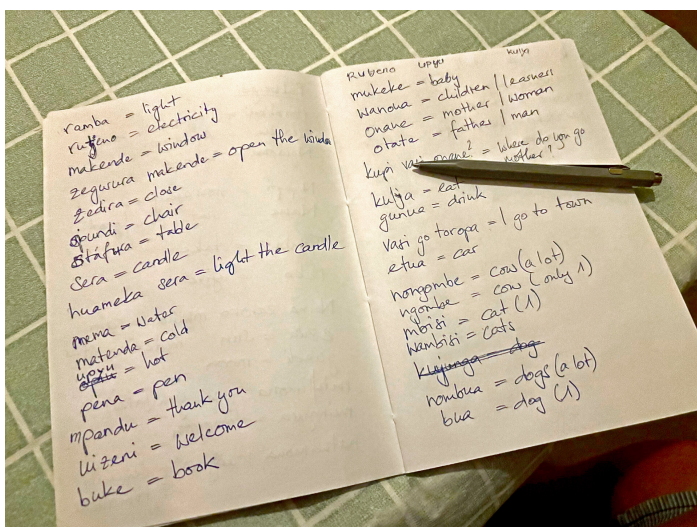 ramba = light
= electricity
makende = window
zegurura makende = open the window
zedira = close
= chair
= table
sera = candle
huameka sera = light the candle
mema = water
matenda = cold
upyu = hot
pena = pen
mpandu = thank you
= welcome
buke = book
Rubeno upyu kulja
mukeke = baby
wanona = children / learners
onane = mother / woman
otate = father / man
kupi vasi onane? = where do you go mother?
kulja = eat
gunue = drink
vasi go toropa = I go to town
etua = car
nongombe = cow (a lot)
ngombe = cow (only 1)
mbisi = cat (1)
wambisi = cats
= dog
nombua = dogs (a lot)
bua = dog (1)